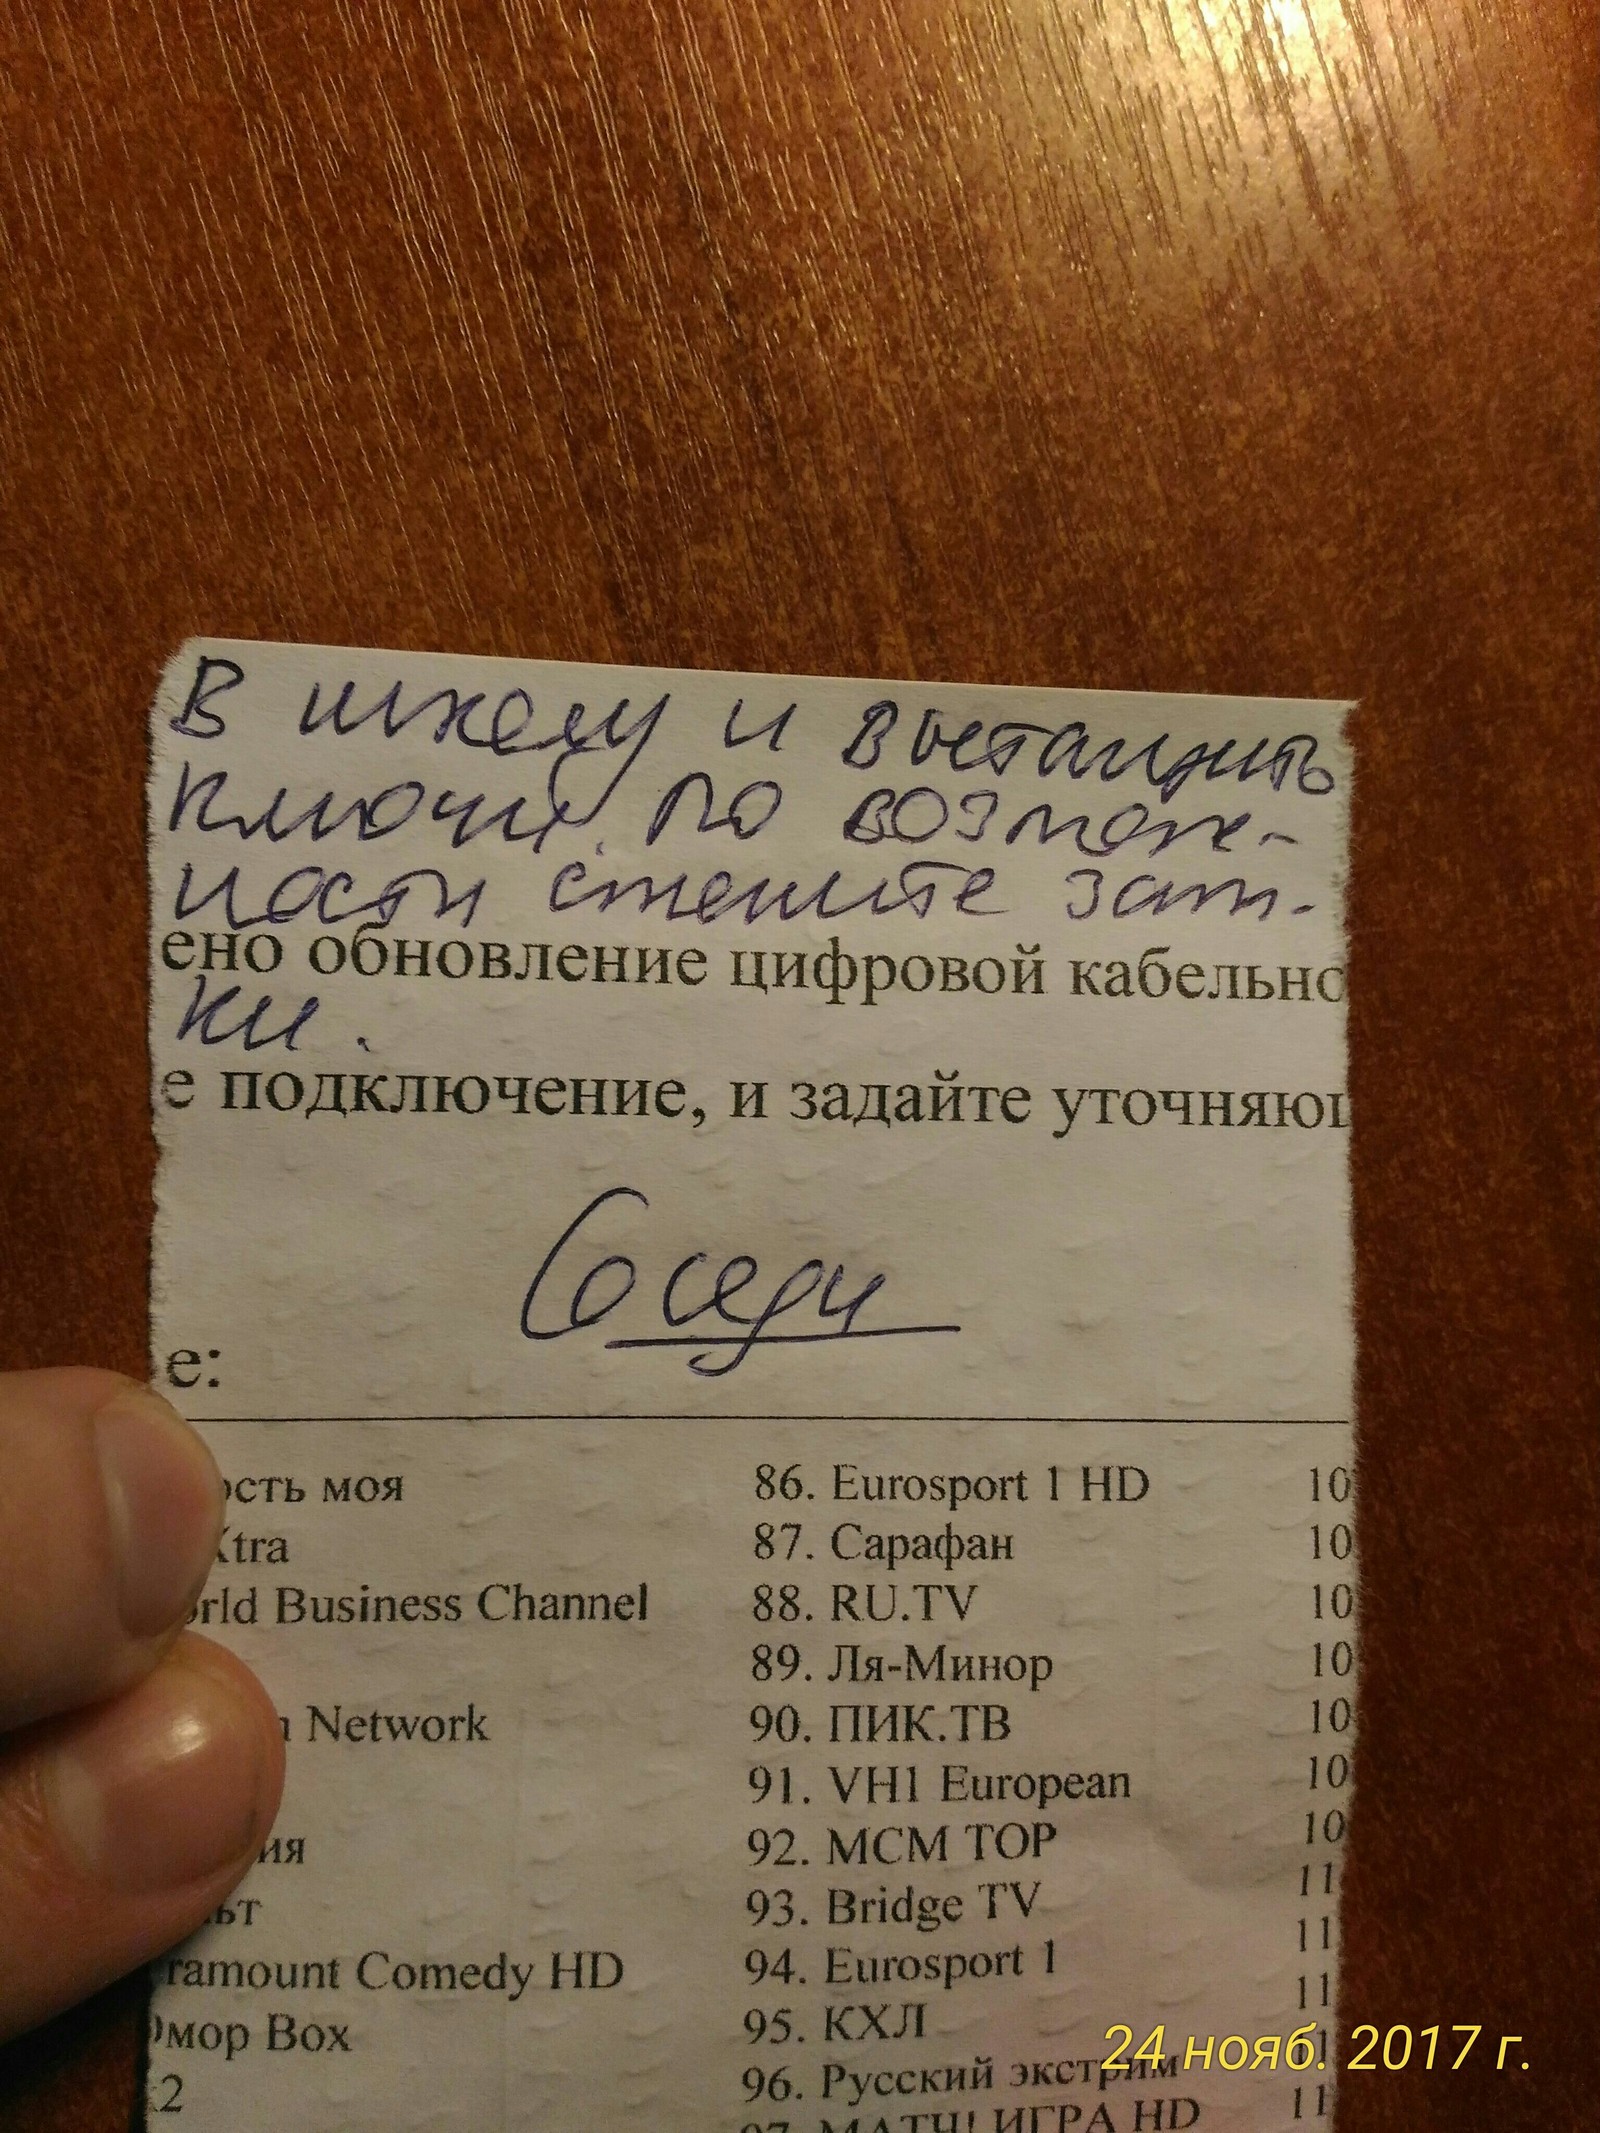 В школу и вытащить
ключи. По возмож-
ности смените зам-
ено обновление цифровой кабельно
ки.
е подключение, и задайте уточняющ
Соседи
е:
ость моя
86. Eurosport 1 HD
10
Xtra
87. Сарафан
10
orld Business Channel
88. RU.TV
10
89. Ля-Минор
10
n Network
90. ПИК.ТВ
10
91. VH1 European
10
92. MCM TOP
10
ия
93. Bridge TV
11
ьт
94. Eurosport 1
11
ramount Comedy HD
95. КХЛ
11
Юмор Box
96. Русский экстрим
11
2
97. МАТЧ! ИГРА HD
11
24 нояб. 2017 г.